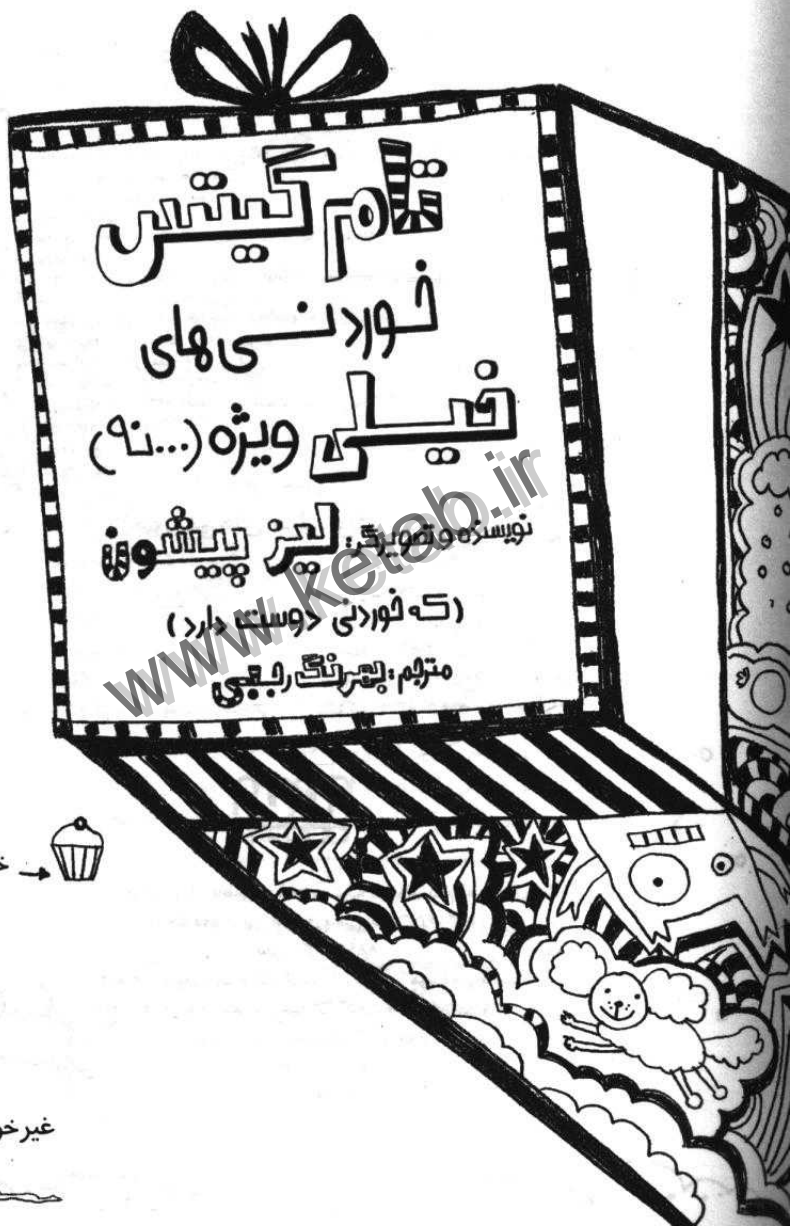 تام گیتس
خوردنی های
خیلی ویژه (...نه)
نویسنده و تصویرگر: لیز پیشون
(که خوردنی دوست دارد)
مترجم: بهرنگ رجبی
www.ketab.ir